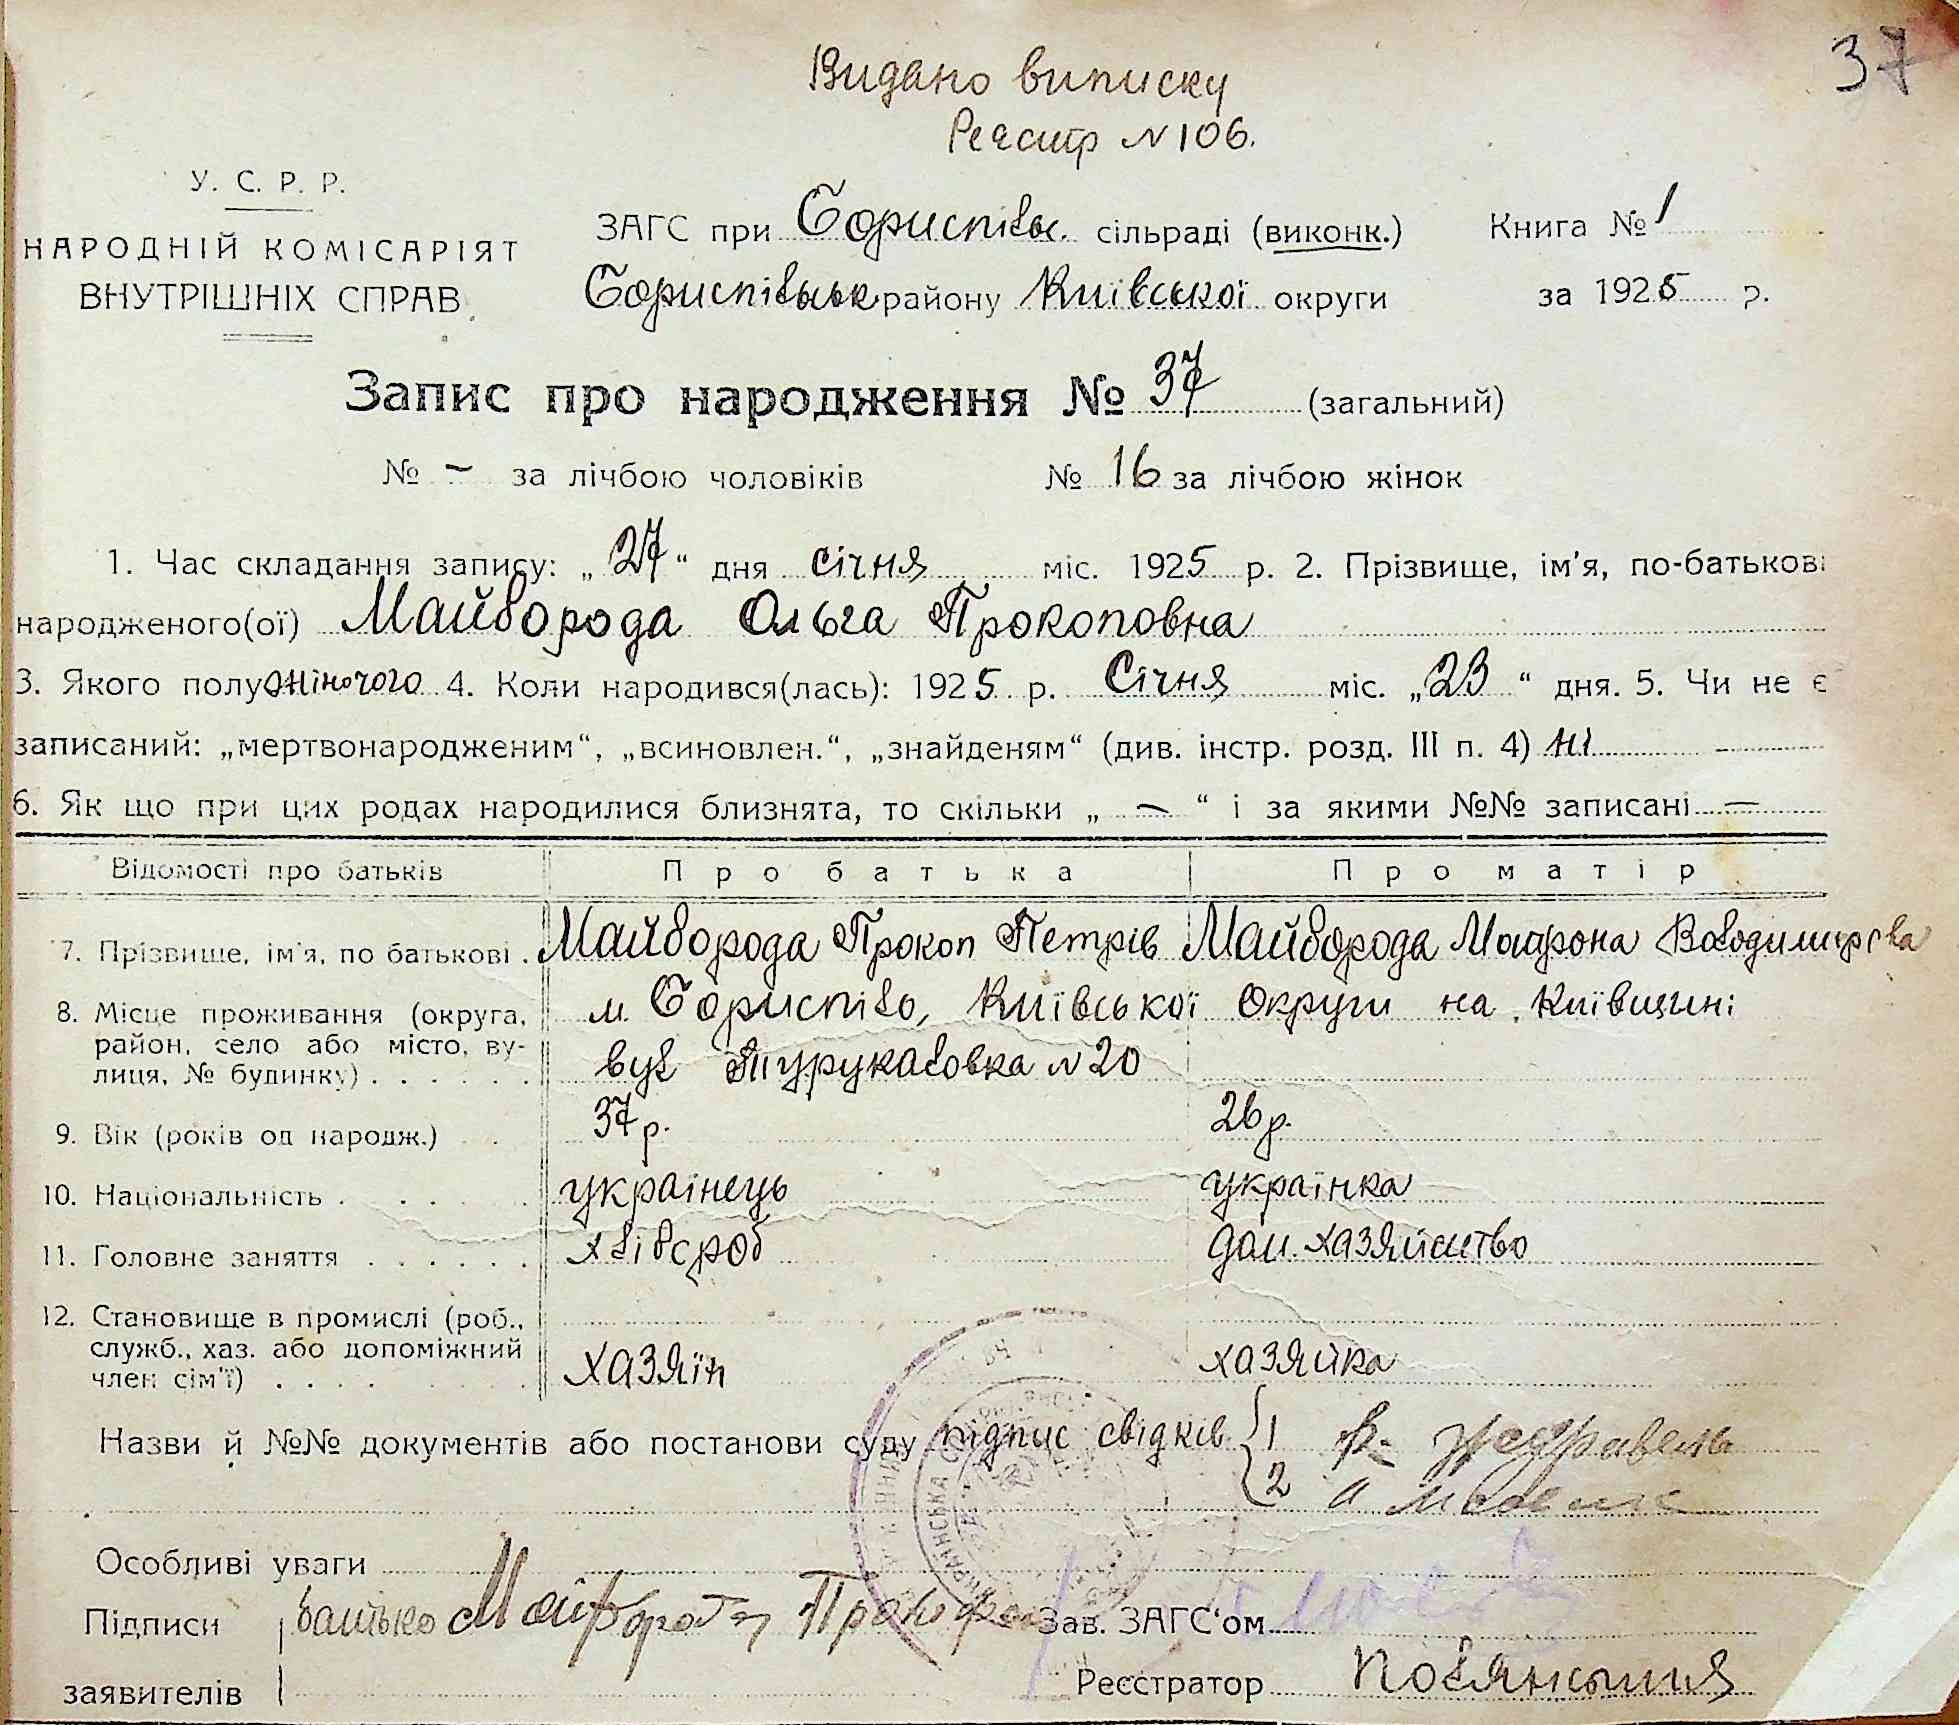 37
Видано виписку
Реєстр N 106.
У. С. Р. Р.
НАРОДНІЙ КОМІСАРІЯТ
ВНУТРІШНІХ СПРАВ
ЗАГС при Бориспільс. сільраді (виконк.) Книга № 1
Бориспільськ району Київської округи за 1925 р.
Запис про народження № 37 (загальний)
№ – за лічбою чоловіків № 16 за лічбою жінок
1. Час складання запису: „27“ дня січня міс. 1925 р. 2. Прізвище, ім'я, по-батькові
народженого(ої) Майборода Ольга Прокоповна
3. Якого полу жіночого 4. Коли народився(лась): 1925 р. Січня міс. „23“ дня. 5. Чи не є
записаний: „мертвонародженим“, „всиновлен.“, „знайденям“ (див. інстр. розд. III п. 4) ні
6. Як що при цих родах народилися близнята, то скільки „ — “ і за якими №№ записані —
Відомості про батьків Про батька Про матір
7. Прізвище, ім'я, по батькові . Майборода Прокоп Петрів Майборода Мотрона Володимирова
8. Місце проживання (округа, м. Бориспіль, Київської Округи на Київщині
район, село або місто, ву-
лиця, № будинку) . . . . . . вул Турукаловка N 20
9. Вік (років од народж.) 37 р. 26 р.
10. Національність . . . . українець українка
11. Головне заняття . . . . . . хлібороб дом. хазяйство
12. Становище в промислі (роб.,
служб., хаз. або допоміжний
член сім'ї) . . . . хазяїн хазяйка
Назви й №№ документів або постанови суду підпис свідків 1
2
Особливі уваги
Підписи батько Майборода Прокофий Зав. ЗАГС'ом
заявителів Реєстратор
УКРАЇНСЬКА